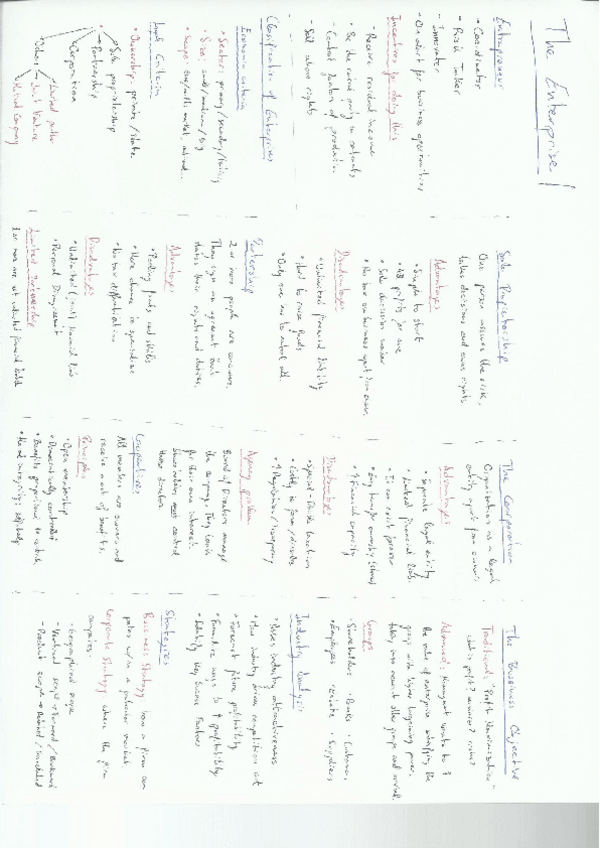 The Enterprise
Entrepreneur
• Coordinator
• Risk Taker
- Innovator
- On alert for business opportunities
Incentives for doing this
- Receive residual income
- Be the central party to contracts
- Control factors of production
- Sell above rights
Classification of Enterprises
Economic criteria
• Sectors: primary/secondary/tertiary
• Size: small/medium/big
• Scope:
Legal Criterion
• Ownership: private/state
• Sole proprietorship
• Partnership
• Corporation
• Others
Limited partner
Joint Venture
Mixed Company
Sole Proprietorship
One person assume the risk,
takes decisions and owns rights.
Advantages
• Simple to start
• All profits for one
• Sole decision maker
Disadvantages
• Unlimited financial liability
• Hard to raise funds
• Only one has to control all.
Partnership
2 or more people are co-owners.
They sign an agreement that
states their rights and duties.
Advantages
• Pooling funds and skills
• More chance to specialize
• No tax differentiation
Disadvantages
• Unlimited financial
• Personal Disagreement
Limited Partnership
The Corporation
Organization as a legal
entity apart from owners
Advantages
• Separate legal entity
• Limited Financial
• It can exist forever
• Easy transfer ownership (shares)
• ↑ Financial capacity
Disadvantages
• Special - Double taxation
• Costly to form/dissolve
• ↑ Regulation/transparency
Agency problem
Board of Directors manage
the company. They
for their own interest.
Shareholders must control
those directors.
Cooperatives
All members are owners and
receive a part of benefits.
Principles
• Open membership
• Democratically controlled
• Benefits proportional to
The Business Objective
Traditional: Profit Maximization -
what is profit?
Advanced: Management wants to ↑
the value of enterprise satisfying the
group with higher bargaining power,
taking into account other groups and
Groups
• Shareholders • Banks • Customers
• Employees • Society • Suppliers
Industry Analysis
• Assess industry attractiveness
• How industry drives competition
• Forecast future profitability
• Formulate ways to ↑ profitability
• Identify Key Success Factors
Strategies
Business Strategy: how a firm com
petes w/in a particular market
Corporate Strategy: where the firm
competes
- Geographical scope
- Vertical scope → forward/backward
- Product scope → related/unrelated